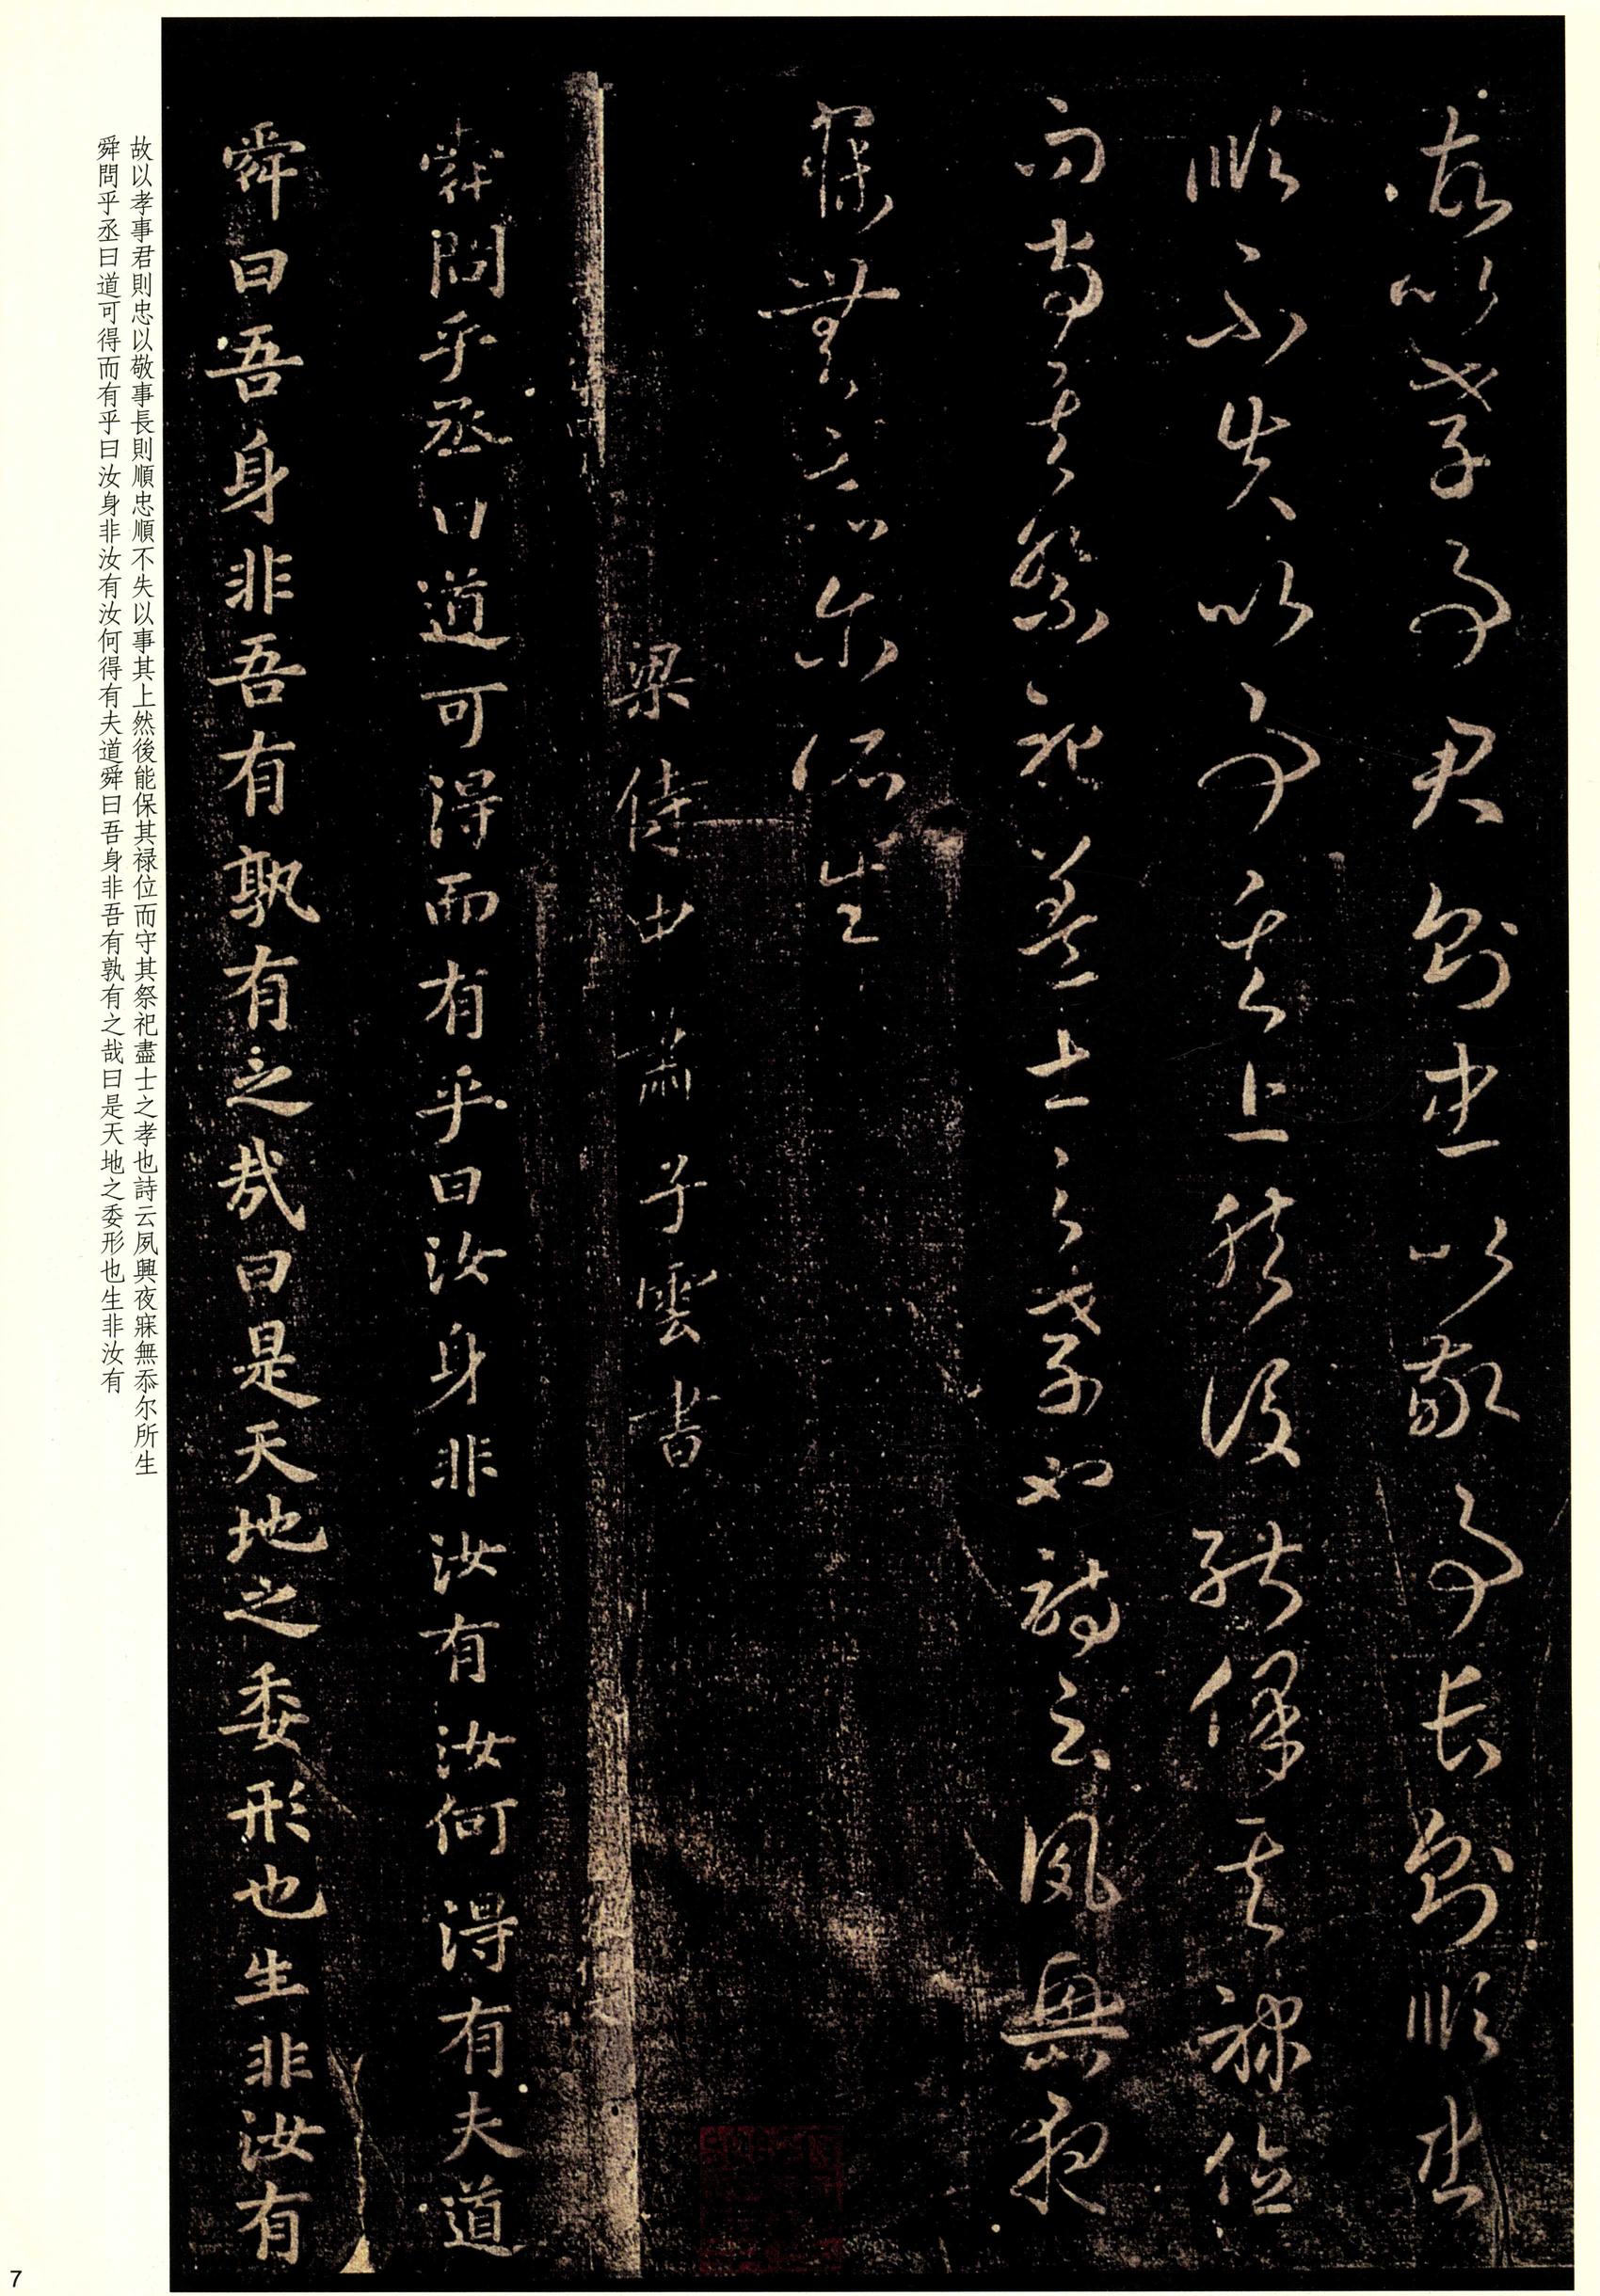 故以孝事君則忠以敬事長則順忠
順不失以事其上然後能保其禄位
而守其祭祀盖士之孝也詩云夙興夜
寐無忝尔所生
梁侍中蕭子雲書
舜問乎丞曰道可得而有乎曰汝身非汝有汝何得有夫道
舜曰吾身非吾有孰有之哉曰是天地之委形也生非汝有
故以孝事君則忠以敬事長則順忠順不失以事其上然後能保其禄位而守其祭祀盡士之孝也詩云夙興夜寐無忝尔所生
舜問乎丞曰道可得而有乎曰汝身非汝有汝何得有夫道舜曰吾身非吾有孰有之哉曰是天地之委形也生非汝有
7